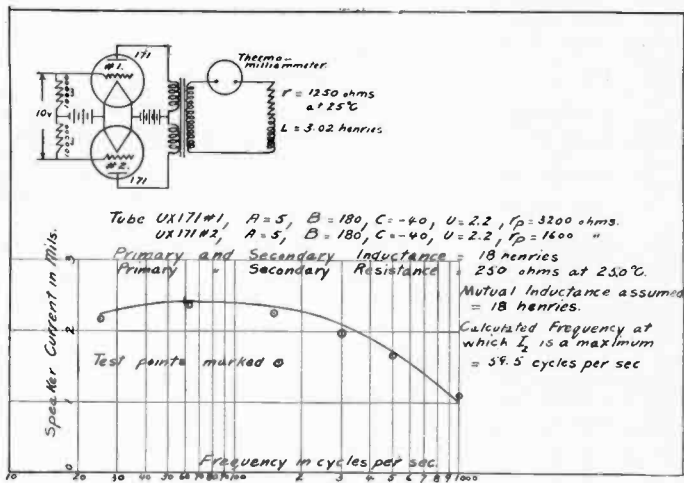 171
#1.
10v
#2.
171
Thermo-
milliammeter.
r = 1250 ohms
at 25°C
L = 3.02 henries
Tube UX171#1, A=5, B=180, C=-40, U=2.2, rp=3200 ohms.
UX171#2, A=5, B=180, C=-40, U=2.2, rp=1600 "
Primary and Secondary Inductance = 18 henries
Primary " Secondary Resistance = 250 ohms at 25.0°C.
Mutual Inductance assumed
= 18 henries.
Calculated Frequency at
which I2 is a maximum
= 59.5 cycles per sec
Test points marked ⊙
Speaker Current in Mils.
3
2
1
0
Frequency in cycles per sec.
10 20 30 40 50 60 70 80 90 100 2 3 4 5 6 7 8 9 1000